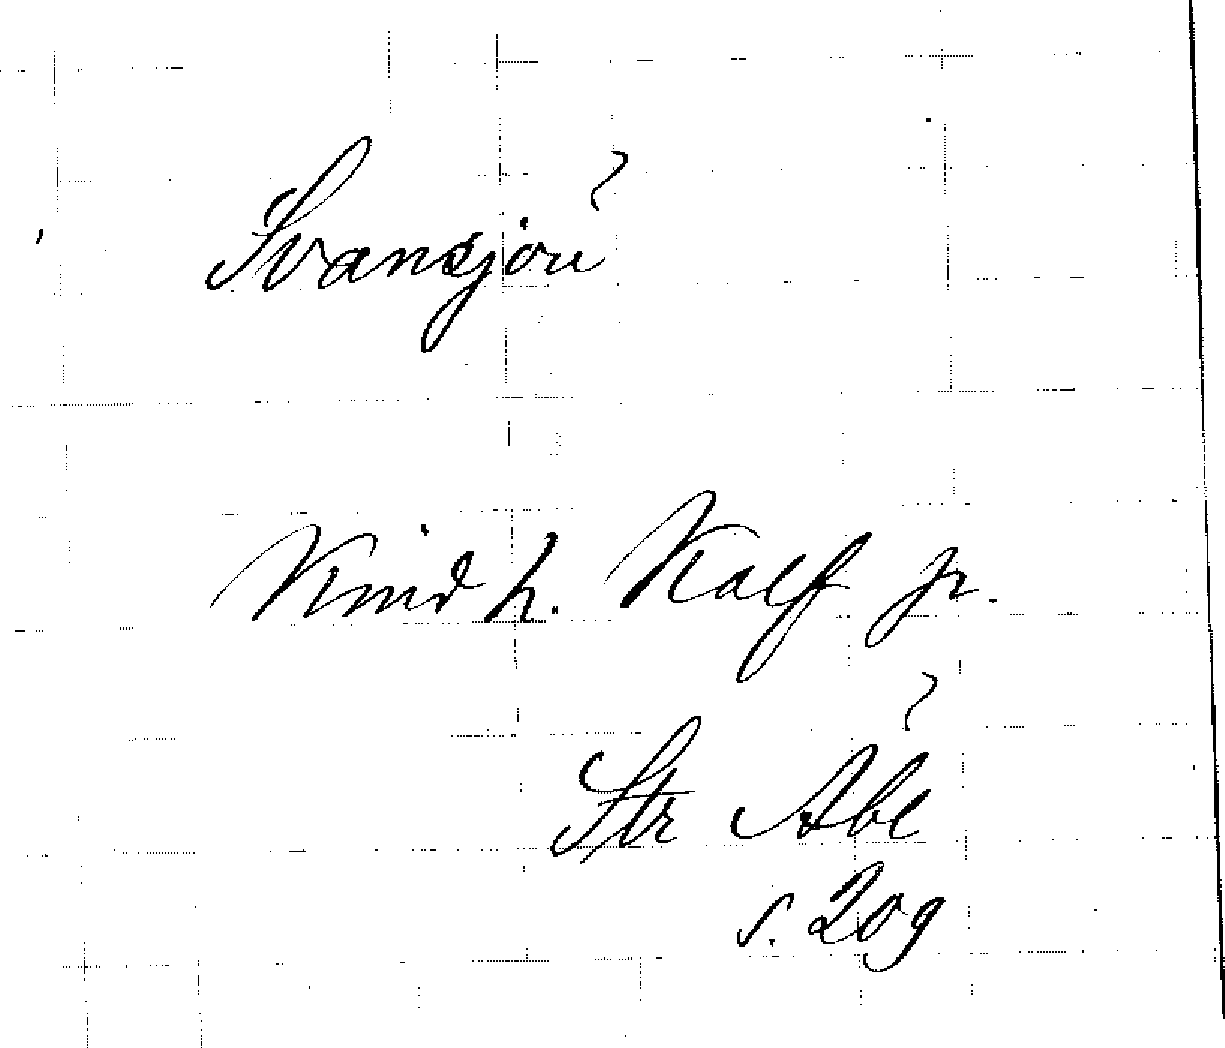 Svansjön
Kind h. Kalf sn.
Str Åbe
s. 209